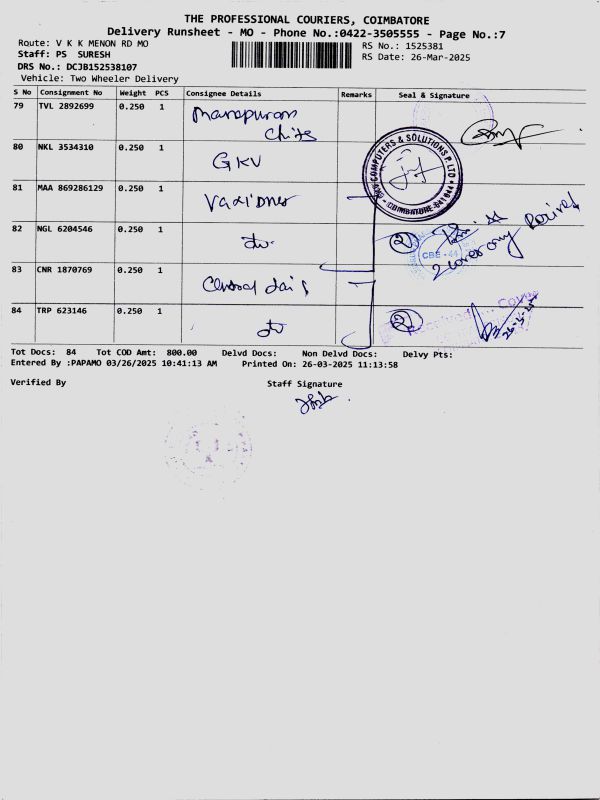 THE PROFESSIONAL COURIERS, COIMBATORE
Delivery Runsheet - MO - Phone No.:0422-3505555 - Page No.:7
Route: V K K MENON RD MO
RS No.: 1525381
Staff: PS SURESH
RS Date: 26-Mar-2025
DRS No.: DCJB152538107
Vehicle: Two Wheeler Delivery
S No Consignment No Weight PCS Consignee Details Remarks Seal & Signature
79 TVL 2892699 0.250 1
80 NKL 3534310 0.250 1 GKV
COMPUTERS & SOLUTIONS P LTD
COIMBATORE-641 044
81 MAA 869286129 0.250 1
82 NGL 6204546 0.250 1 2
CBE - 44
83 CNR 1870769 0.250 1
84 TRP 623146 0.250 1 2
Tot Docs: 84 Tot COD Amt: 800.00 Delvd Docs: Non Delvd Docs: Delvy Pts:
Entered By :PAPAMO 03/26/2025 10:41:13 AM Printed On: 26-03-2025 11:13:58
Verified By Staff Signature